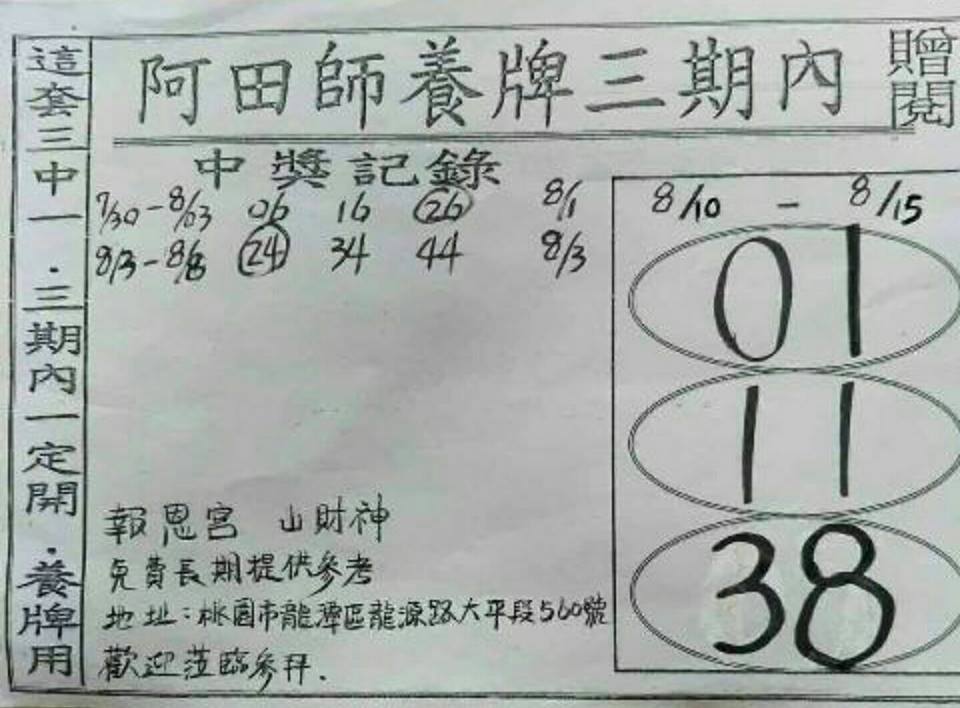 這套三中一．三期內一定開．養牌用
阿田師養牌三期內
贈閱
中獎記錄
7/30-8/03 06 16 26 8/1
8/3-8/8 24 34 44 8/3
8/10 - 8/15
01
11
38
報恩宮 山財神
免費長期提供參考
地址：桃園市龍潭區龍源路大平段560號
歡迎蒞臨參拜.